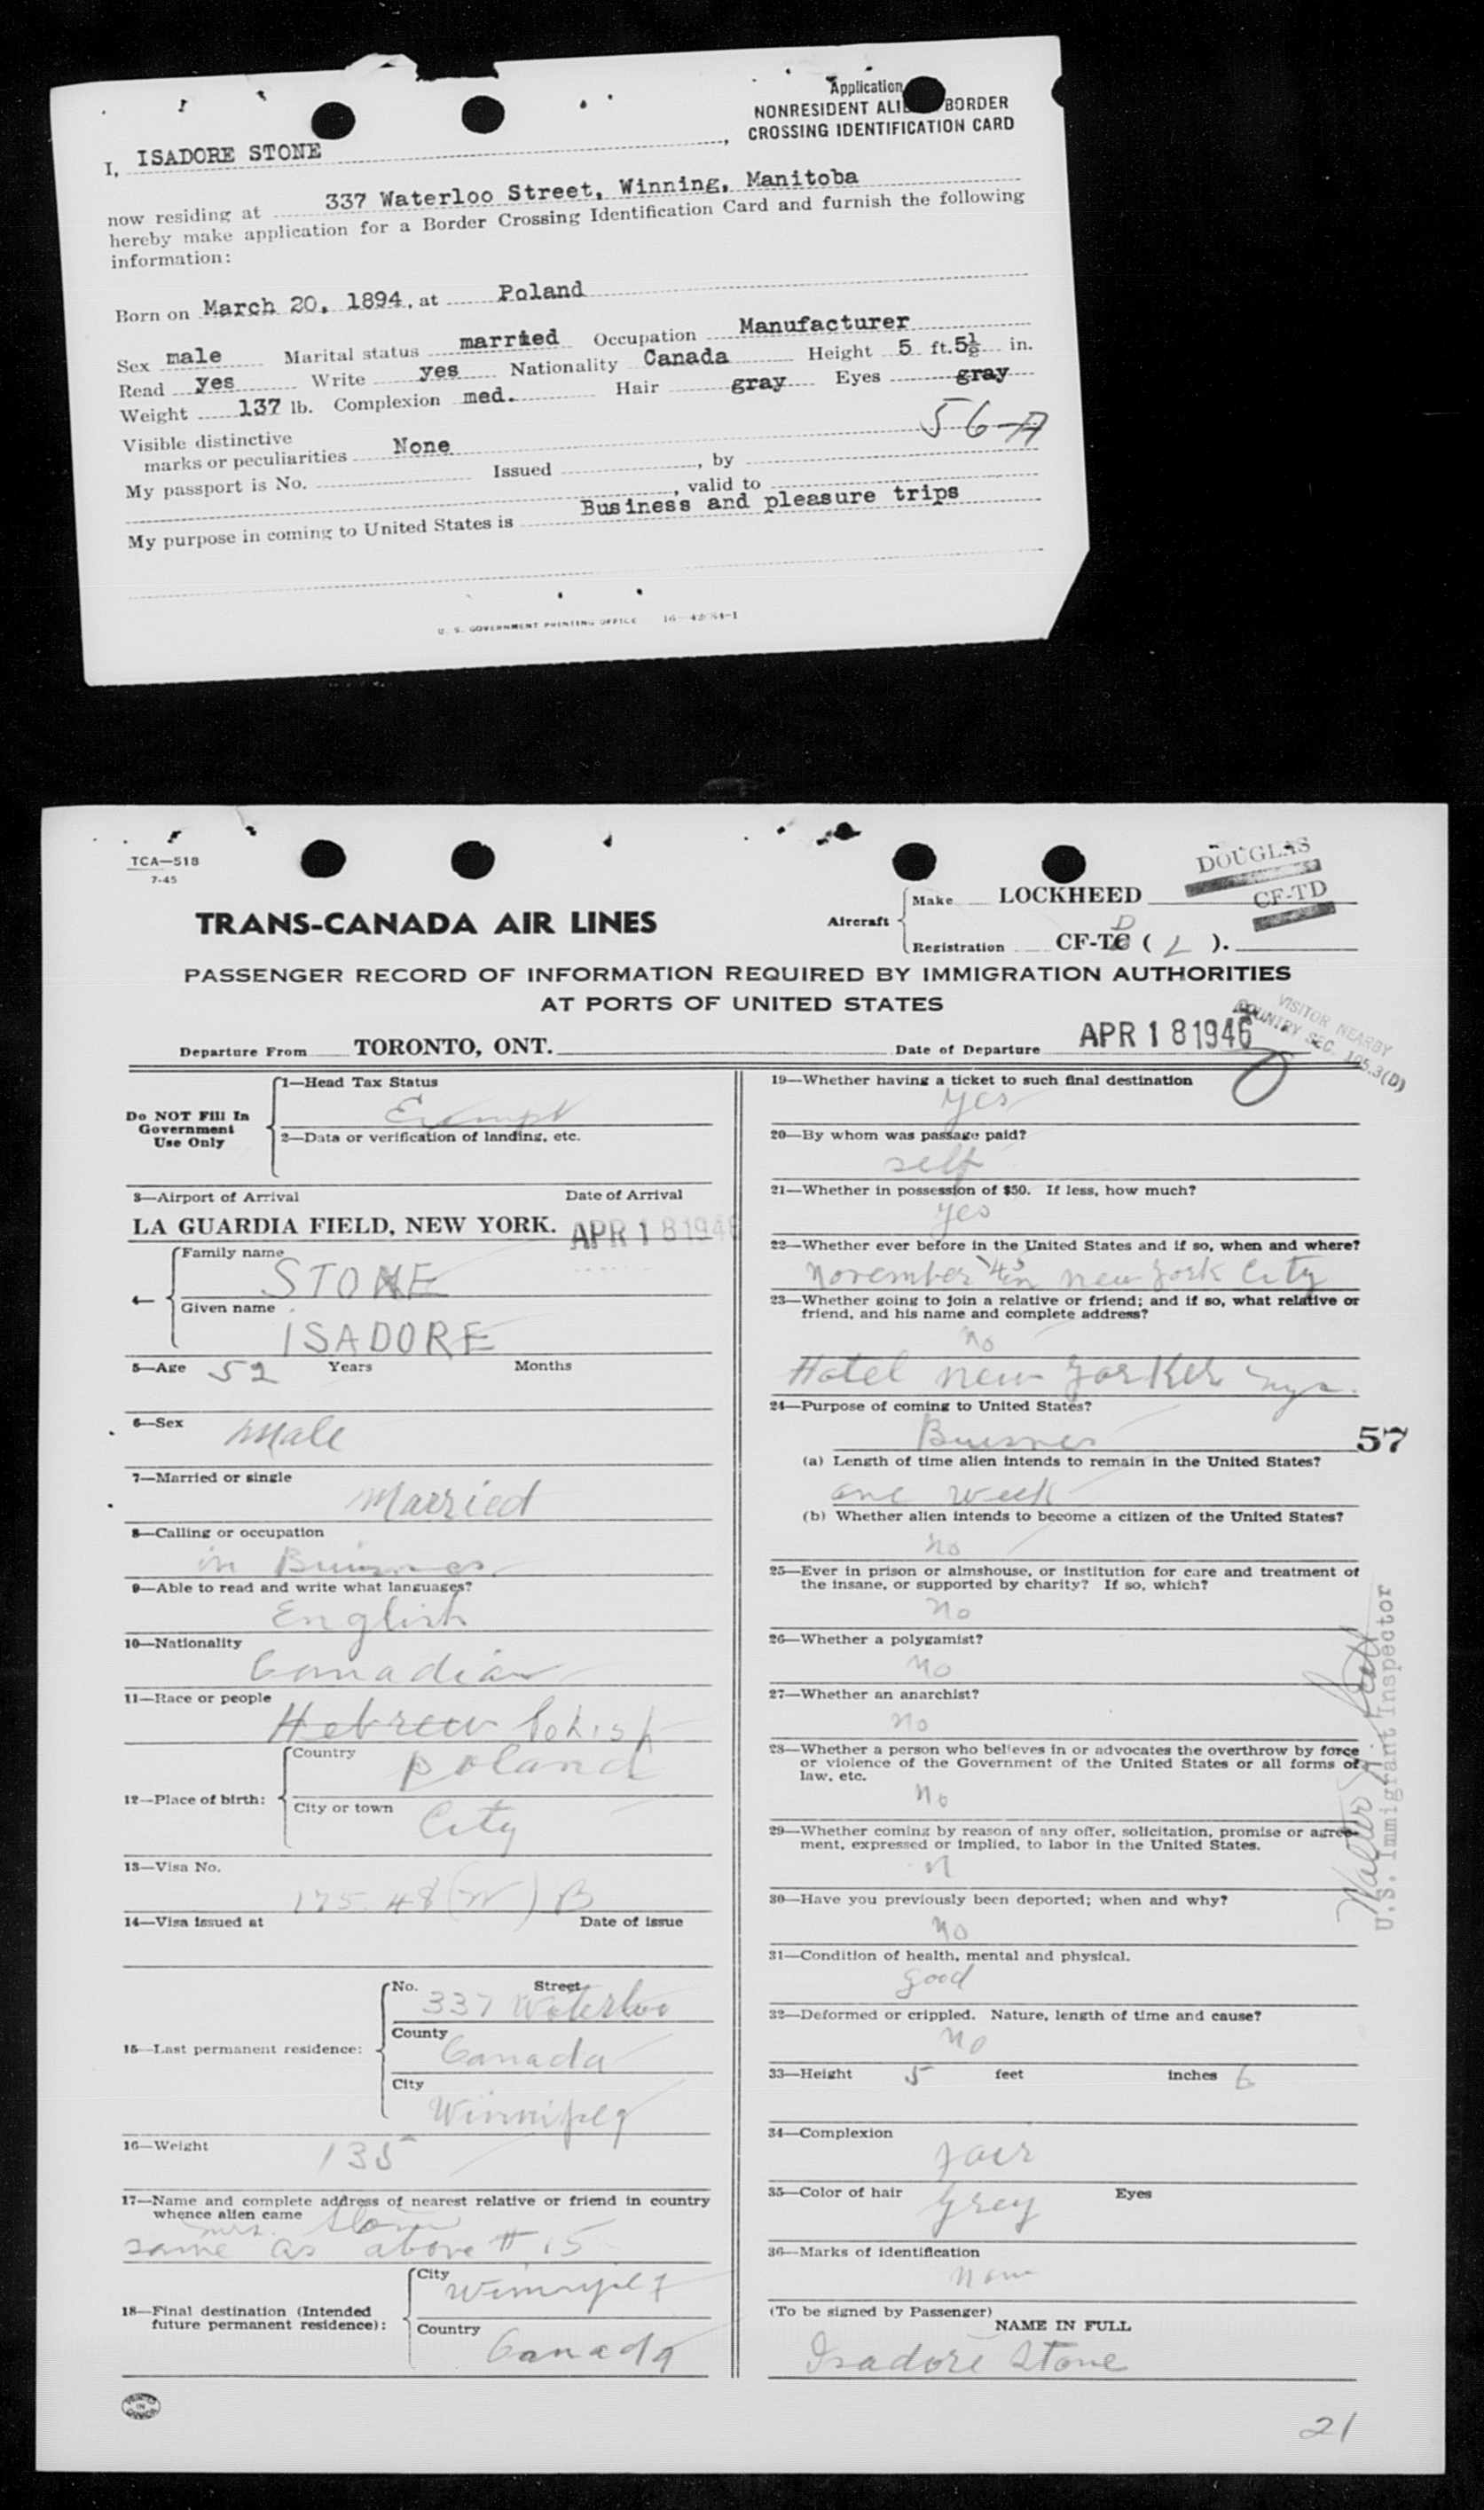 Application
NONRESIDENT ALI BORDER
CROSSING IDENTIFICATION CARD
I, ISADORE STONE,
now residing at 337 Waterloo Street, Winning, Manitoba
hereby make application for a Border Crossing Identification Card and furnish the following
information:
Born on March 20, 1894, at Poland
Sex male Marital status married Occupation Manufacturer
Read yes Write yes Nationality Canada Height 5 ft. 5½ in.
Weight 137 lb. Complexion med. Hair gray Eyes gray
Visible distinctive
marks or peculiarities None 56-A
My passport is No. Issued , by
, valid to
My purpose in coming to United States is Business and pleasure trips
U. S. GOVERNMENT PRINTING OFFICE
TCA—518
7-45
DOUGLAS
CF-TD
TRANS-CANADA AIR LINES
Aircraft
Make LOCKHEED
Registration CF-TD ( L ).
PASSENGER RECORD OF INFORMATION REQUIRED BY IMMIGRATION AUTHORITIES
AT PORTS OF UNITED STATES
VISITOR NEARBY
COUNTRY SEC. 105.3(D)
Departure From TORONTO, ONT. Date of Departure APR 18 1946
Do NOT Fill In
Government
Use Only
1—Head Tax Status
Exempt
2—Data or verification of landing, etc.
3—Airport of Arrival Date of Arrival
LA GUARDIA FIELD, NEW YORK. APR 18 1946
Family name
STONE
Given name
ISADORE
5—Age 52 Years Months
6—Sex Male
7—Married or single
Married
8—Calling or occupation
in
9—Able to read and write what languages?
English
10—Nationality
Canadian
11—Race or people
Hebrew Polish
12—Place of birth:
Country
Poland
City or town
City
13—Visa No.
175.48 (W) B
14—Visa issued at Date of issue
15—Last permanent residence:
No. Street
337 Waterloo
County
Canada
City
Winnipeg
16—Weight 135
17—Name and complete address of nearest relative or friend in country
whence alien came
Mrs. Stone
same as above # 15
18—Final destination (Intended
future permanent residence):
City
Winnipeg
Country
Canada
19—Whether having a ticket to such final destination
yes
20—By whom was passage paid?
self
21—Whether in possession of $50. If less, how much?
yes
22—Whether ever before in the United States and if so, when and where?
November '45 in New York City
23—Whether going to join a relative or friend; and if so, what relative or
friend, and his name and complete address?
no
Hotel New Yorker Nyc.
24—Purpose of coming to United States?
57
(a) Length of time alien intends to remain in the United States?
one week
(b) Whether alien intends to become a citizen of the United States?
no
25—Ever in prison or almshouse, or institution for care and treatment of
the insane, or supported by charity? If so, which?
no
26—Whether a polygamist?
no
27—Whether an anarchist?
no
28—Whether a person who believes in or advocates the overthrow by force
or violence of the Government of the United States or all forms of
law, etc.
no
29—Whether coming by reason of any offer, solicitation, promise or agree-
ment, expressed or implied, to labor in the United States.
n
30—Have you previously been deported; when and why?
no
31—Condition of health, mental and physical.
good
32—Deformed or crippled. Nature, length of time and cause?
no
33—Height 5 feet inches 6
34—Complexion
fair
35—Color of hair Eyes
Grey
36—Marks of identification
None
(To be signed by Passenger)
NAME IN FULL
Isadore Stone
Walter
U.S. Immigrant Inspector
21